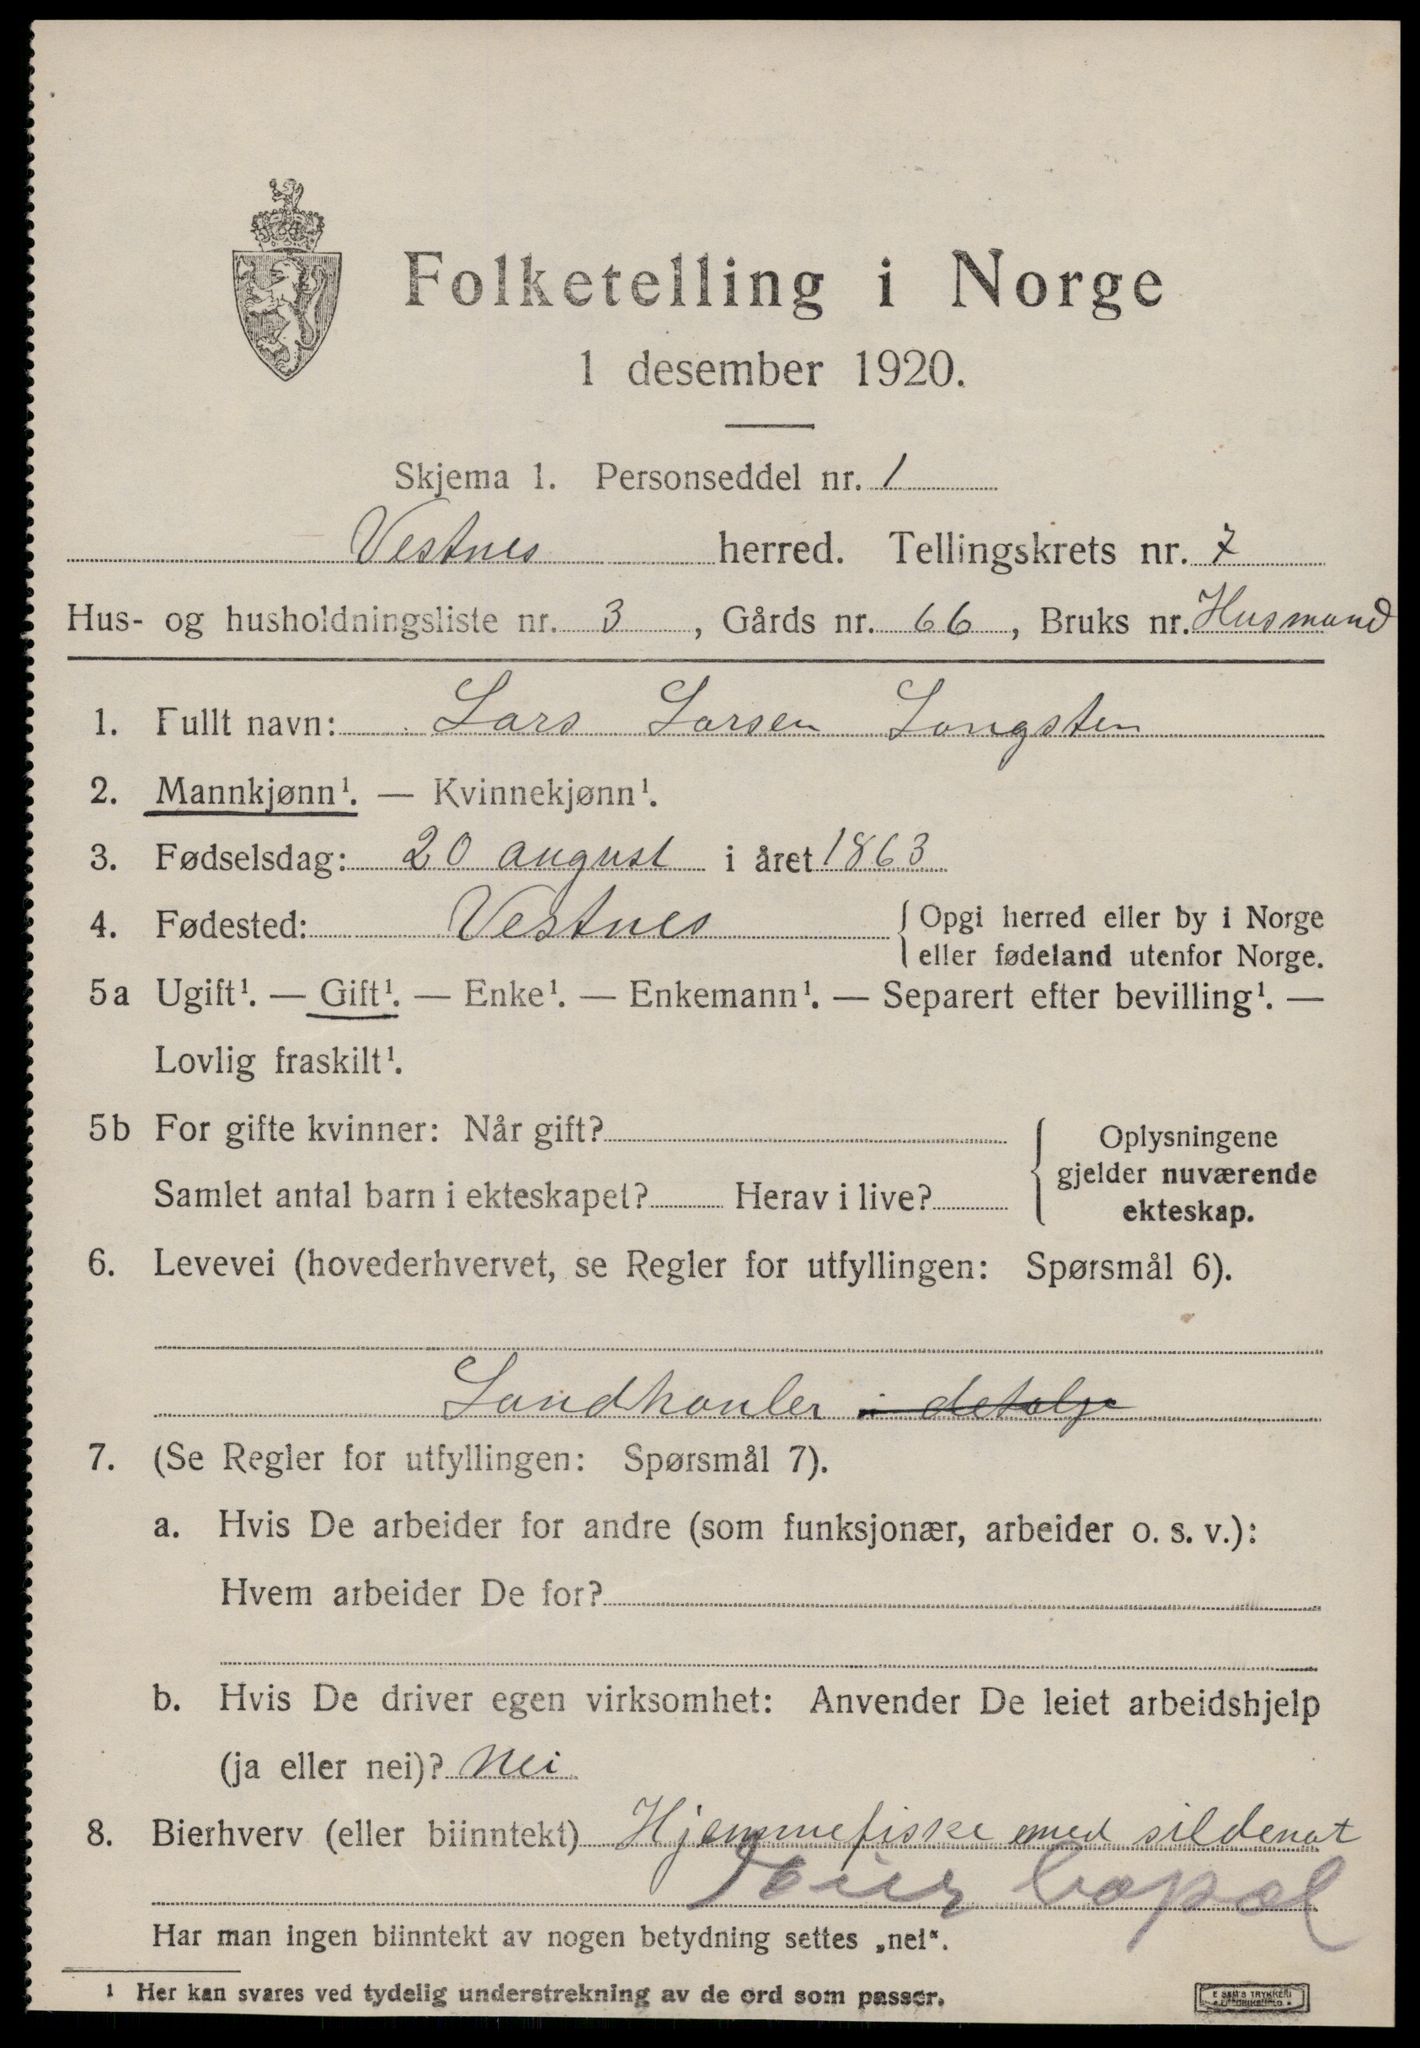 Folketelling i Norge
1 desember 1920.
Skjema 1. Personseddel nr. 1
Vestnes herred. Tellingskrets nr. 7
Hus- og husholdningsliste nr. 3, Gårds nr. 66, Bruks nr. Husmand
1. Fullt navn: Lars Larsen Langsten
2. Mannkjønn¹. — Kvinnekjønn¹.
3. Fødselsdag: 20 august i året 1863
4. Fødested: Vestnes { Opgi herred eller by i Norge
eller fødeland utenfor Norge.
5a Ugift¹. — Gift¹. — Enke¹. — Enkemann¹. — Separert efter bevilling¹. —
Lovlig fraskilt¹.
5b For gifte kvinner: Når gift? { Oplysningene
gjelder nuværende
Samlet antal barn i ekteskapet? Herav i live?
ekteskap.
6. Levevei (hovederhvervet, se Regler for utfyllingen: Spørsmål 6).
Landhanler i detalje
7. (Se Regler for utfyllingen: Spørsmål 7).
a. Hvis De arbeider for andre (som funksjonær, arbeider o. s. v.):
Hvem arbeider De for?
b. Hvis De driver egen virksomhet: Anvender De leiet arbeidshjelp
(ja eller nei)? Nei
8. Bierhverv (eller biinntekt) Hjemmefiske med sildenot
Har man ingen biinntekt av nogen betydning settes „nei“.
¹ Her kan svares ved tydelig understrekning av de ord som passer.